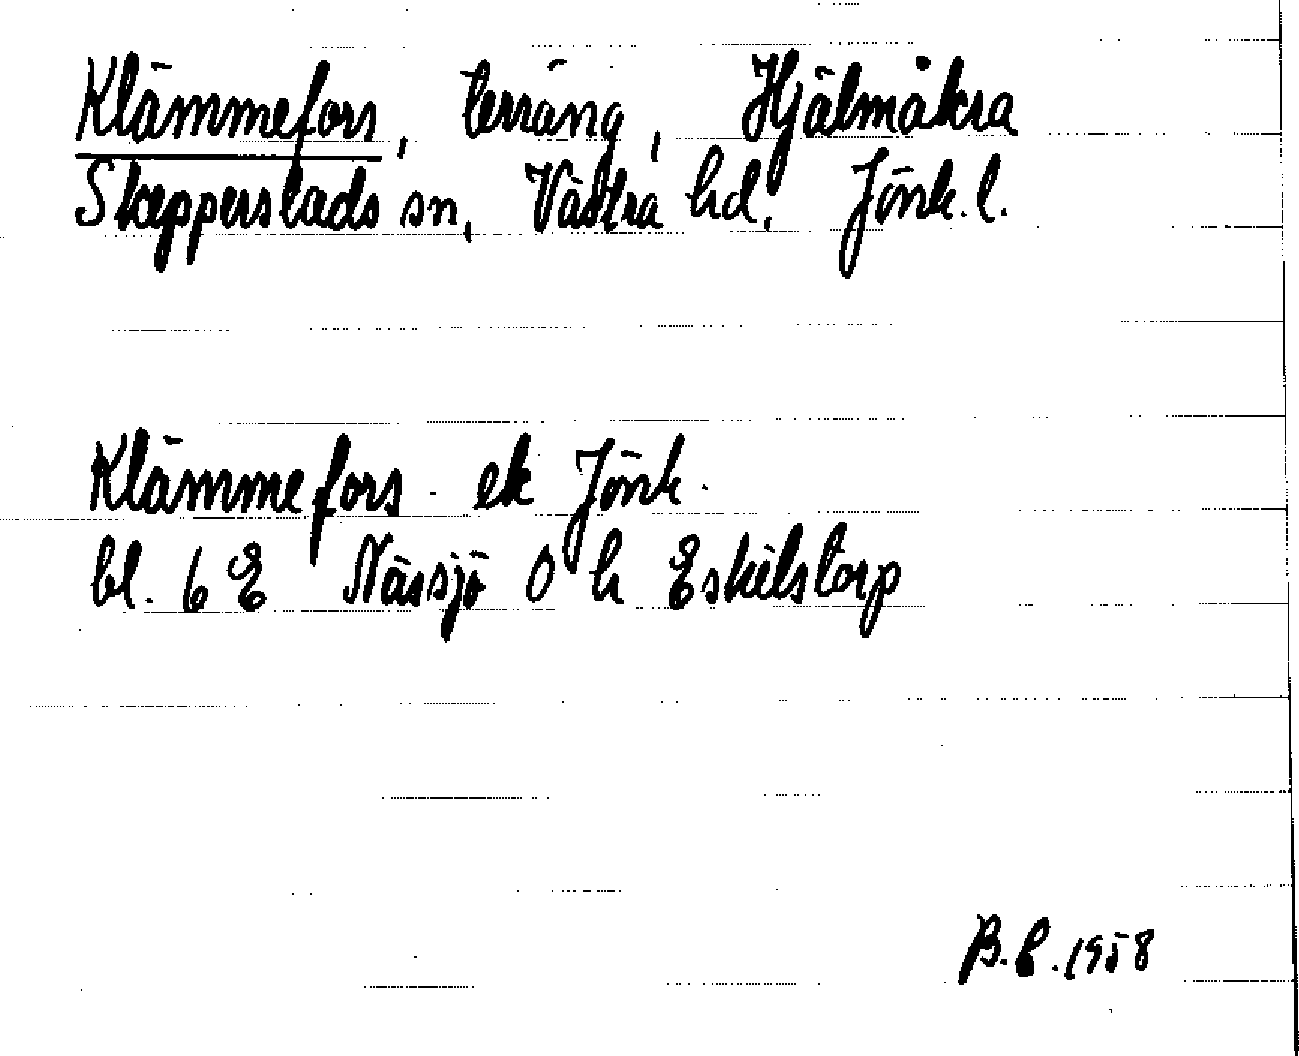 Klämmefors, terräng, Hjälmåkra
Skepperstads sn, Västra hd, Jönk. l.
Klämmefors - ek Jönk.
bl. 6 E Nässjö 0 h Eskilstorp
B.E. 1958